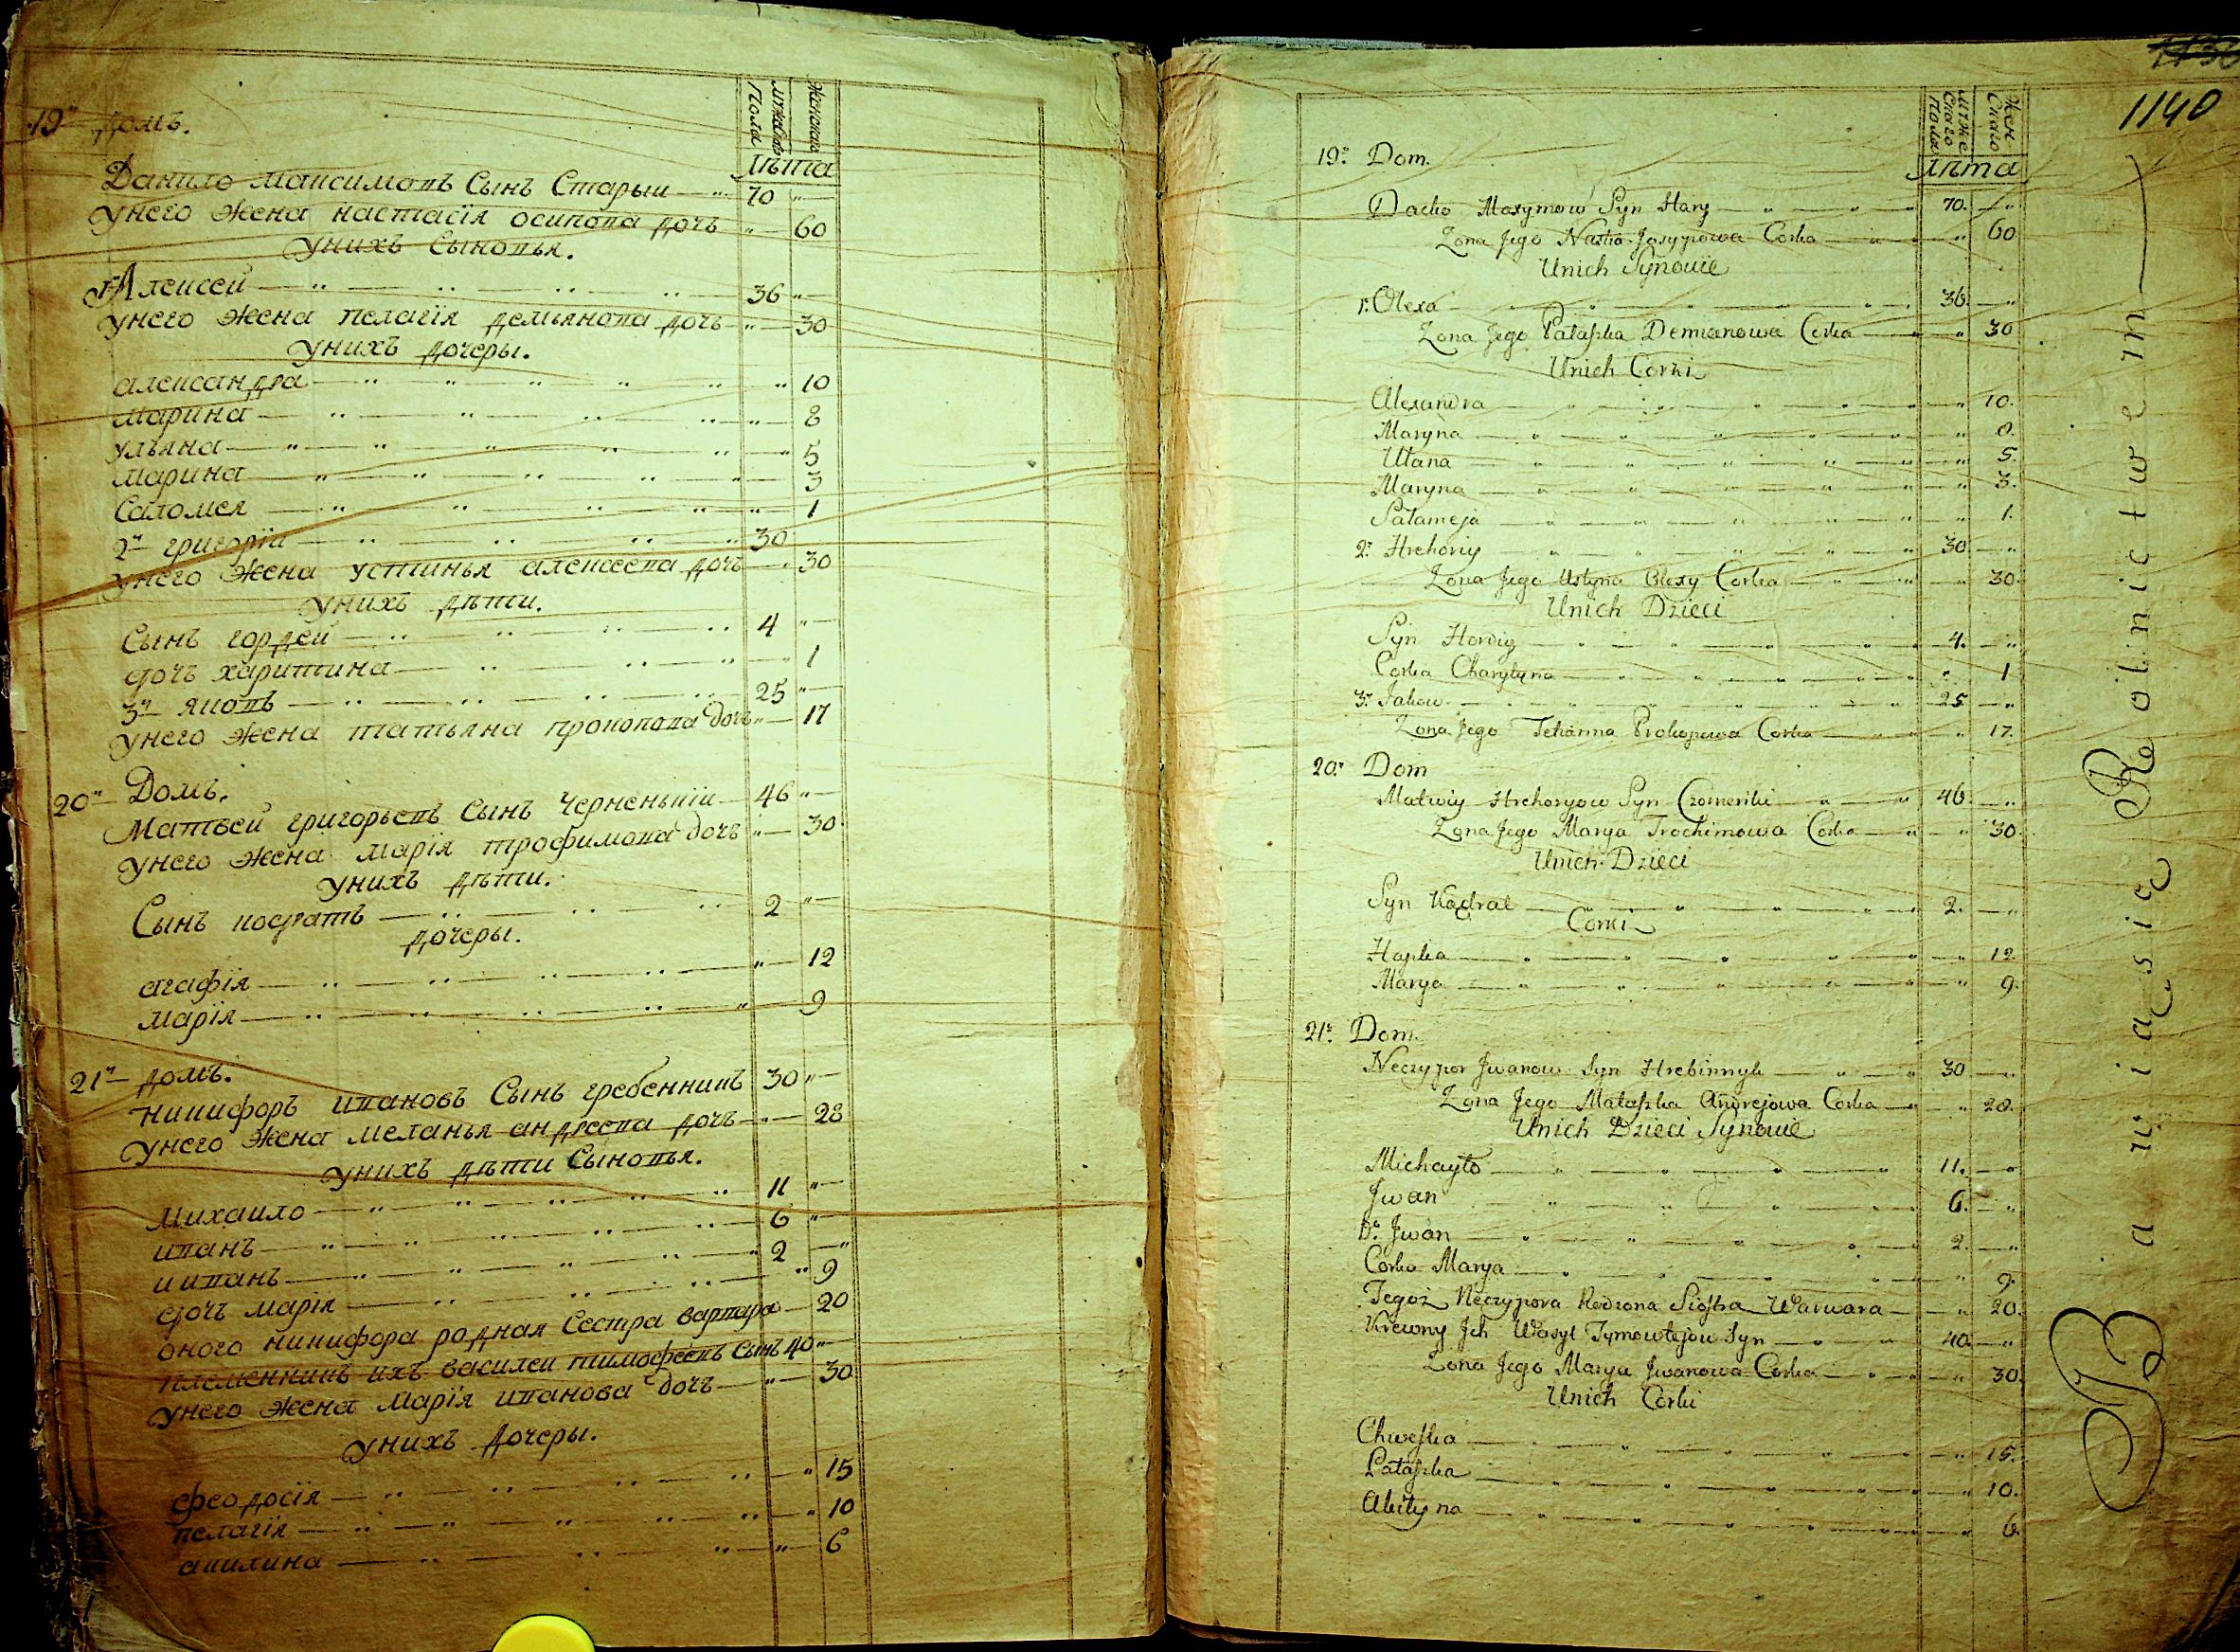 Мужеска Пола
Женска
19й Домъ.
Лѣта
Данило Максимовъ Сынъ Старыи 70
унего Жена настасія осипова дочъ 60
унихъ Сыновья.
1й Алексей 36
унего жена пелагія демьянова дочь 30
унихъ дочеры.
александра 10
марина 8
ульяна 5
марина 3
Саломея 1
2й григоріи 30
унего жена устинья алексеева дочъ 30
унихъ дѣти.
Сынъ гордей 4
дочъ харитина 1
3й яковъ 25
унего жена татьяна прокопова дочъ 17
20й Домъ.
Матвей григорьевъ Сынъ Черненькіи 46
унего жена марія трофимова дочъ 30
унихъ дѣти.
Сынъ кодратъ 2
дочеры.
агафія 12
марія 9
21й домъ.
никифоръ ивановъ Сынъ гребенникъ 30
унего жена меланья андреева дочъ 28
унихъ дѣти Сыновья.
Михаило 11
иванъ 6
и иванъ 2
дочъ марія 9
оного никифора родная Сестра варвара 20
племенникъ ихъ василеи тимофеевъ сынъ 40
унего жена Марія иванова дочъ 30
унихъ дочеры.
феодосія 15
пелагія 10
акилина 6
1140
Муже Скаго Пола
Жен Скаго
19. Dom.
Лѣта
Dacko Maxymow Syn Stary 70.
Zona Jego Nastia Josypowa Corka 60
Unich Synowie
1. Olexa 36.
Zona Jego Pałaszka Demianowa Corka 30
Unich Corki
Alexandra 10.
Maryna 8.
Ulana 5.
Maryna 3.
Sałameja 1.
2. Hrehoriy 30
Zona Jego Ustyna Olexy Corka 30.
Unich Dzieci
Syn Hordiy 4.
Corka Charytyna 1
3. Jakow 25
Zona Jego Tehanna Prokopowa Corka 17.
20. Dom
Matwiy Hrehoryow Syn Czornenki 46.
Zona Jego Marya Trochimowa Corka 30.
Unich Dzieci
Syn Kądrat 2.
Corki
Hapka 12
Marya 9.
21. Dom.
Neczypor Jwanow Syn Hrebinnyk 30
Zona Jego Małaszka Andrejowa Corka 28.
Unich Dzieci Synowie
Michayło 11.
Jwan 6.
Dr. Jwan 2.
Corka Marya 9.
Tegoż Neczypora Rodzona Siostra Warwara 20.
Krewny Jch Wasyl Tymowtejow Syn 40.
Zona Jego Marya Jwanowa Corka 30.
Unich Corki
Chweska 15.
Pałaszka 10.
Akityna 6.
Bawiąsię Rolnictwem